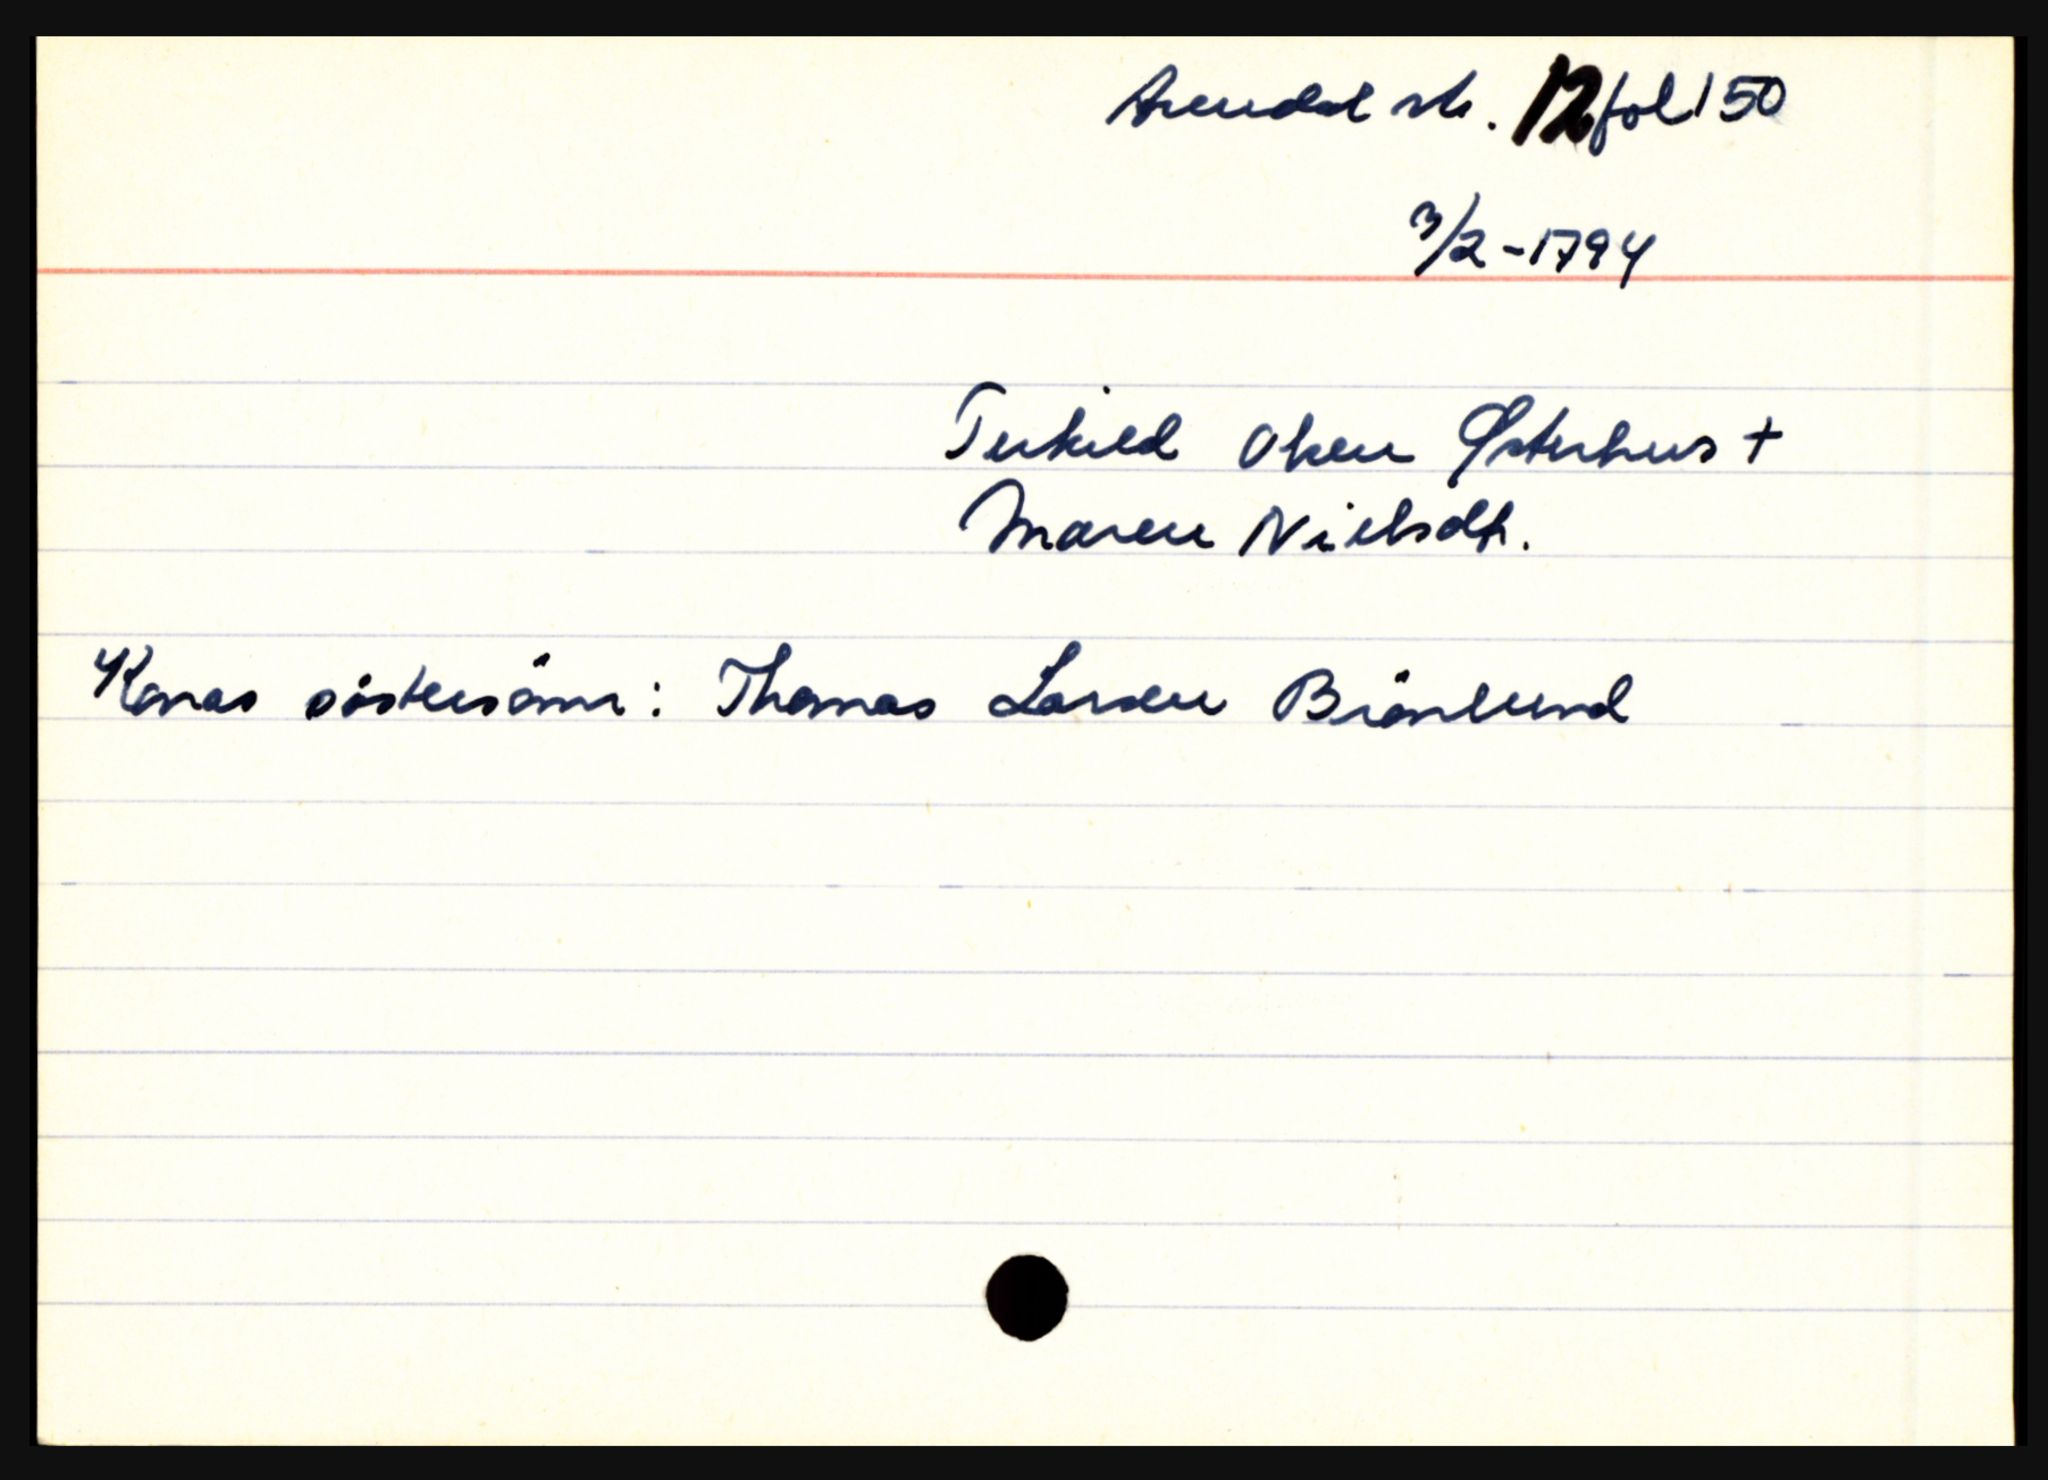 Arendal sk. 12 fol 150
3/2-1794
Terkild Olsen Østerhus +
Maren Nielsdtr.
Konas söstersönn: Thomas Larsen Brönlund